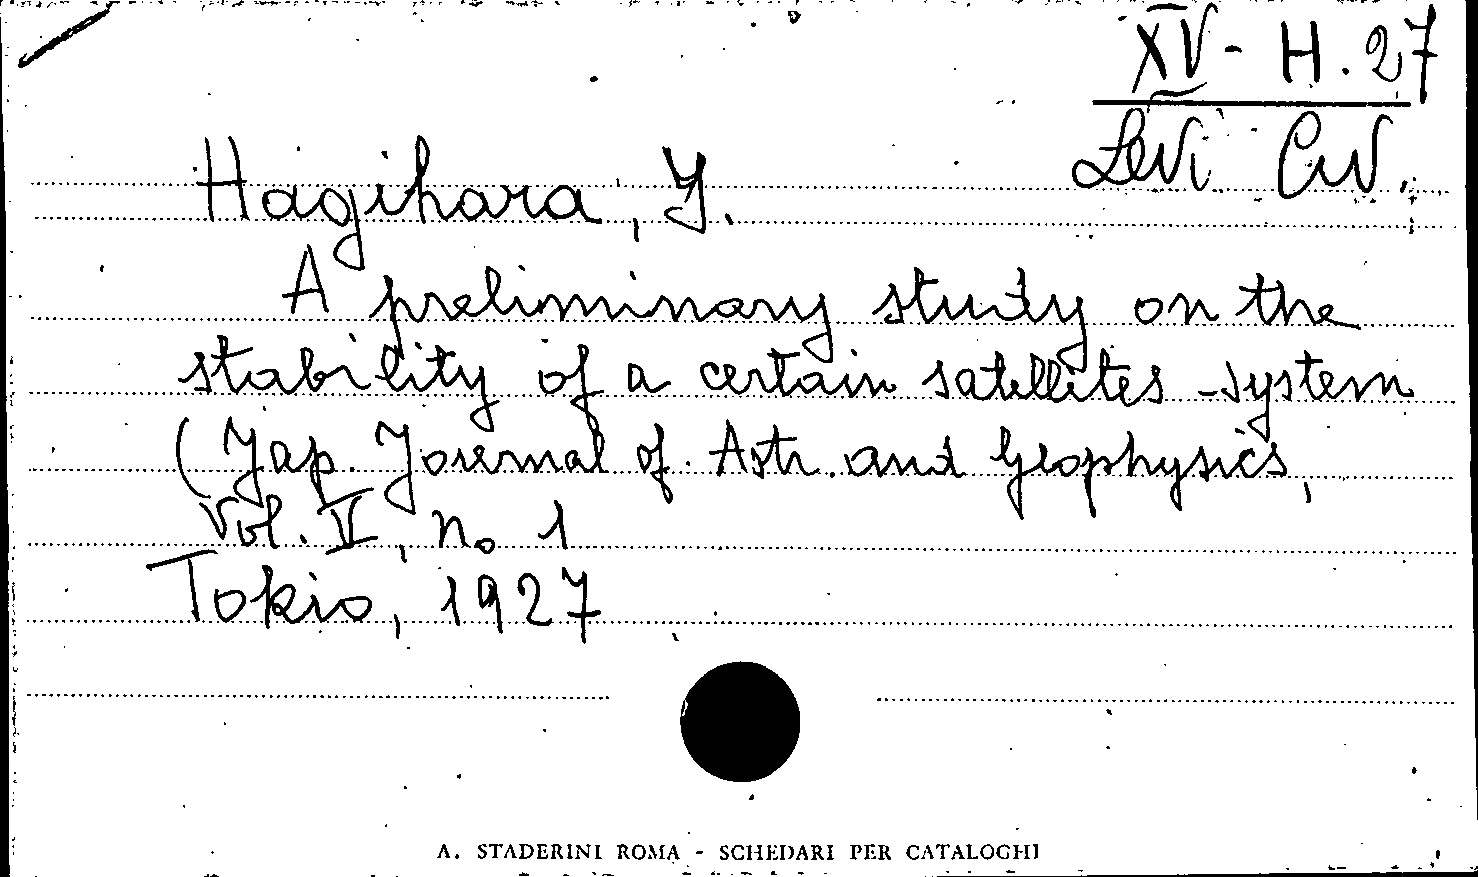 XV - H. 27
Levi Civ.
Hagihara, Y.
A preliminary study on the
stability of a certain satellites-system
(Jap. Journal of Astr. and Geophysics,
Vol. V, no 1
Tokio, 1927
A. STADERINI ROMA - SCHEDARI PER CATALOGHI